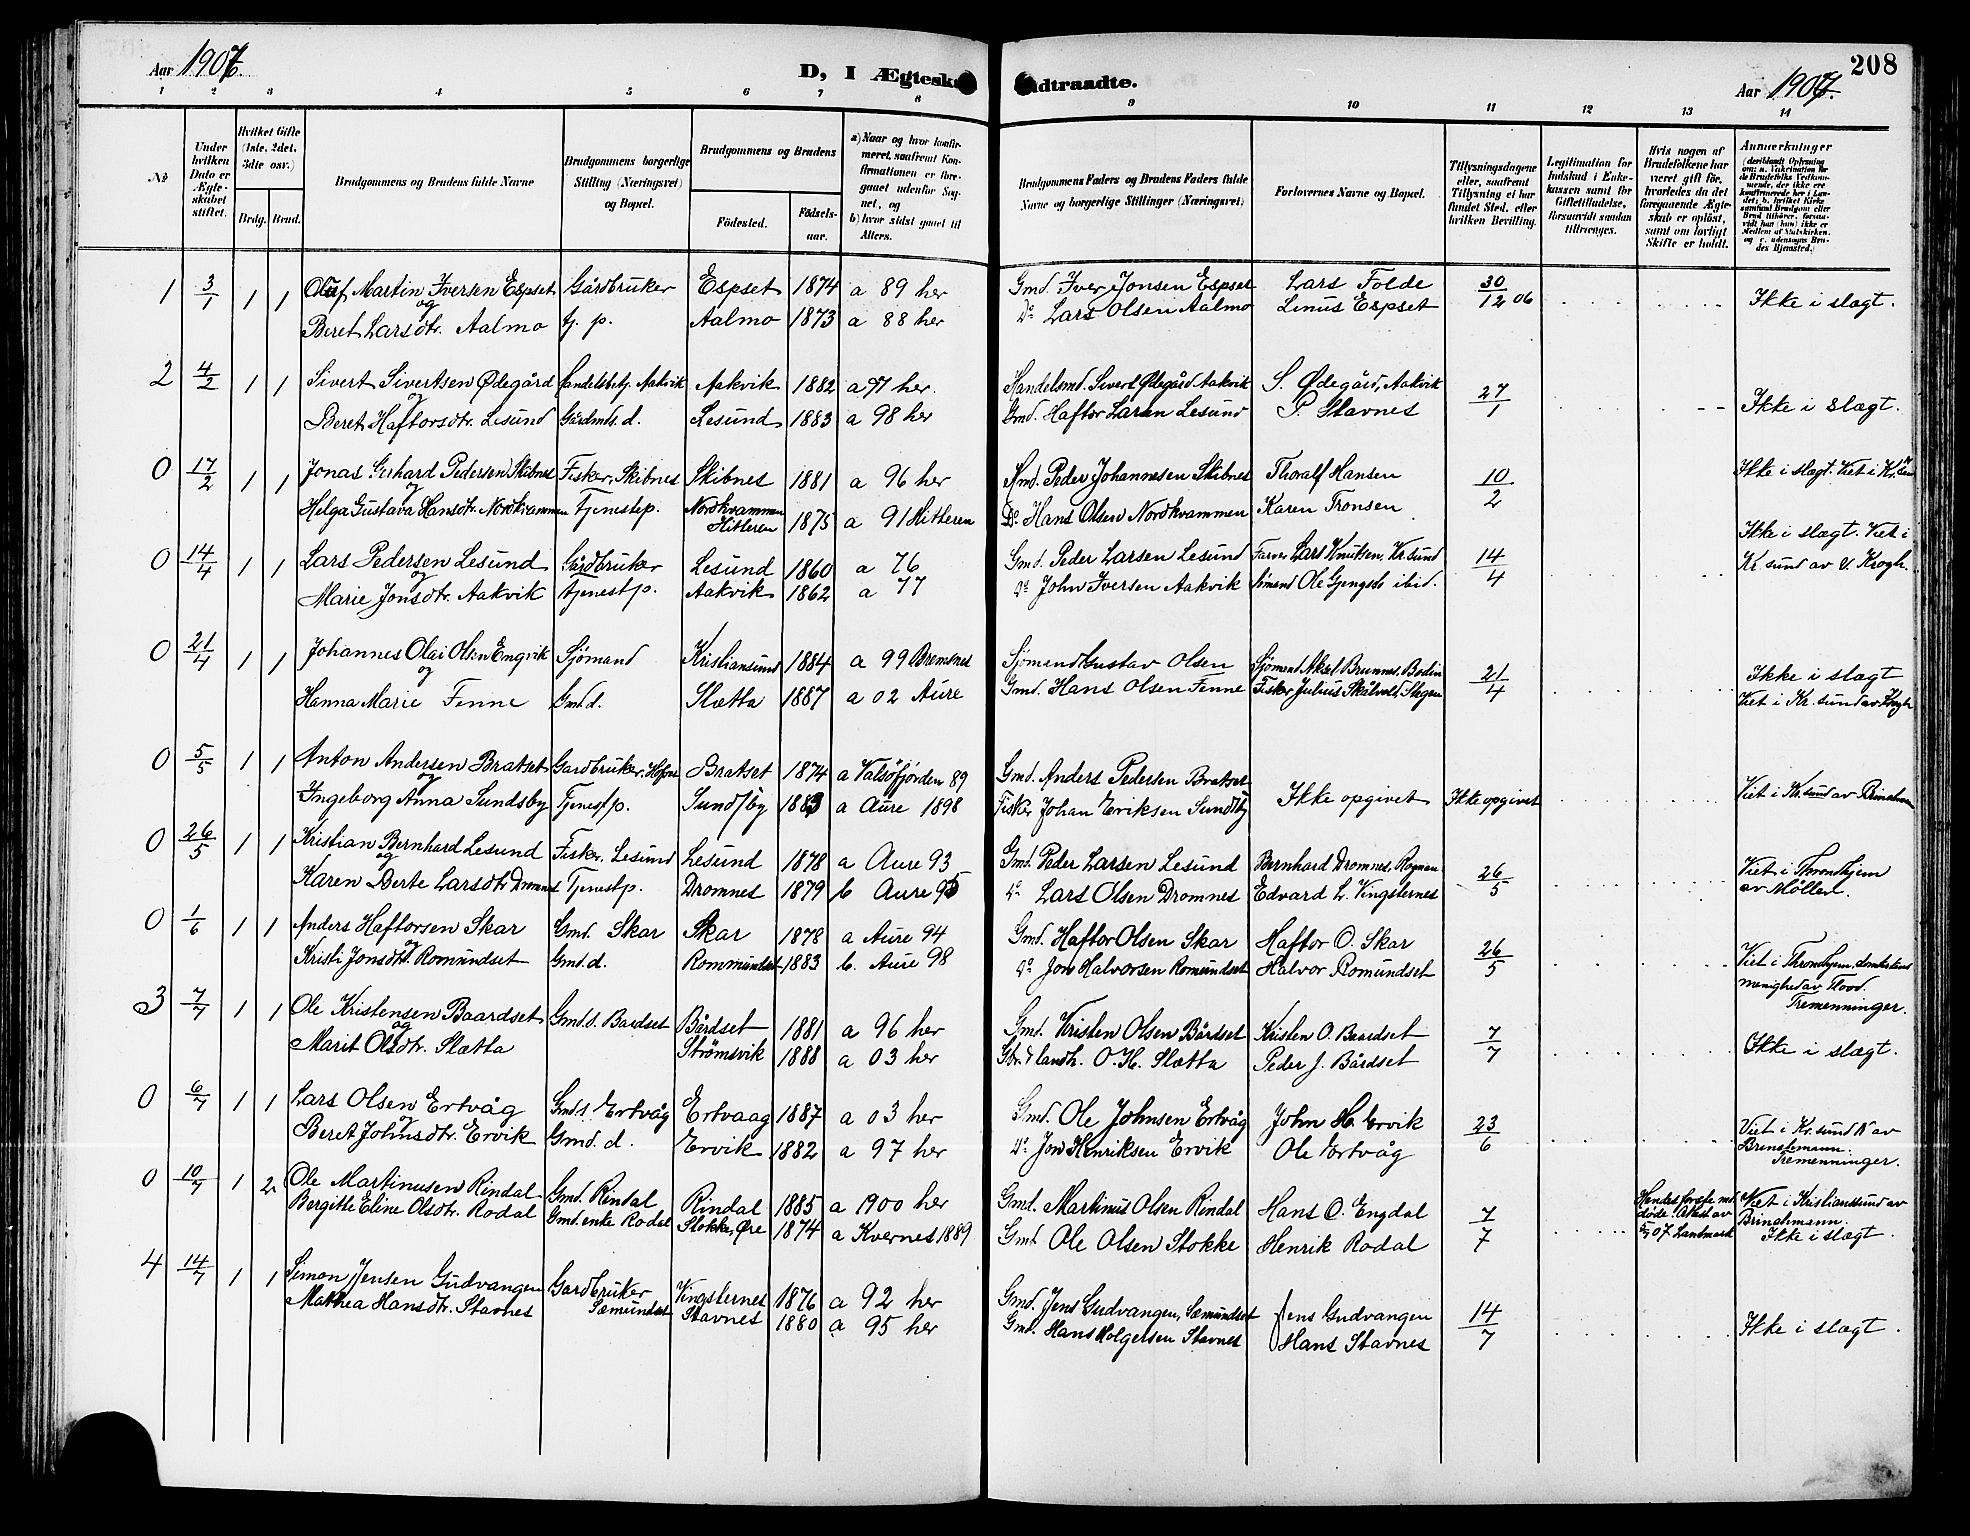 208
Aar 1907.
D, I Ægtesk
ndtraadte.
Aar 1907.
1 2 3 4 5 6 7 8 9 10 11 12 13 14
No
Under hvilken Dato er Ægteskabet stiftet.
Hvilket Gifte (1ste, 2det, 3dte osv.)
Brdg. Brud.
Brudgommens og Brudens fulde Navne
Brudgommens borgerlige Stilling (Næringsvei) og Bopæl.
Brudgommens og Brudens
Fødested. Fødselsaar.
a) Naar og hvor konfirmeret, saafremt Konfirmationen er foregaaet udenfor Sognet, og
b) hvor sidst gaaet til Alters.
Brudgommens Faders og Brudens Faders fulde Navne og borgerlige Stillinger (Næringsvei)
Forlovernes Navne og Bopæl.
Tillysningsdagene eller, saafremt Tillysning ei har fundet Sted, efter hvilken Bevilling.
Legitimation for Indskud i Enkekassen samt for Giftetilladelse, forsaavidt saadan tiltrænges.
Hvis nogen af Brudefolkene har været gift før, hvorledes da det foregaaende Ægteskab er opløst, samt om lovligt Skifte er holdt.
Anmærkninger
1 3/1 1 1 Oluf Martin Iversen Espset Gårdbruker Espset 1874 a 89 her Gmd. Iver Jonsen Espset Lars Folde 30/12 06 Ikke i slægt.
og
Beret Larsdtr. Aalmo tj. p. Aalmo 1873 a 88 her Do Lars Olsen Aalmo Linus Espset
2 4/2 1 1 Sivert Sivertsen Ødegård Handelsbetj. Aakvik Aakvik 1882 a 97 her. Handelsmd. Sivert Ødegård Aakvik S. Ødegård, Aakvik 27/1 Ikke i slægt.
og
Beret Haftorsdtr. Lesund Gårdmds. d. Lesund 1883 a 98 her Gmd. Haftor Larsen Lesund P. Stavnes
0 17/2 1 1 Jonas Gerhard Pedersen Skibnes Fisker, Skibnes Skibnes 1881 a 96 her Hmd. Peder Johannesen Skibnes Thoralf Hansen 10/2 Ikke i slægt. Viet i Kr.sun
og
Helga Gustava Hansdtr. Nordkvammen Tjenestp. Nordkvammen Hitteren 1875 a 91 Hitteren Do. Hans Olsen Nordkvammen Karen Tronsen
0 14/4 1 1 Lars Pedersen Lesund Gårdbruker Lesund 1860 a 76 Gmd. Peder Larsen Lesund Farver Lars Knutsen, Kr.sund 14/4 Ikke i slægt. Viet i Kr.sund av v. Krogh.
og
Marie Jonsdtr. Aakvik tjenestp. Aakvik 1862 a 77 Do John Iversen Aakvik Sömand Ole Gjengstö ibid.
0 21/4 1 1 Johannes Olai Olsen Engvik Sjömand Kristiansund 1884 a 99 Bremsnes Sjömand Gustav Olsen Sjömand Aksel Brunnes, Bodin 21/4 Ikke i slægt
og
Hanna Marie Fenne Gmd.d. Slætta 1887 a 02 Aure Gmd. Hans Olsen Fenne Fisker Julius Skålvold Stegen Viet i Kr.sund av Krogh
0 5/5 1 1 Anton Andersen Bratset Gardbruker. Hofne Bratset 1874 a Valsöfjorden 89 Gmd. Anders Pedersen Bratset Ikke opgivet Ikke opgivet Viet i Kr.sund av Brinchm
og
Ingeborg Anna Sundsby Tjenest p. Sundsby 1883 a Aure 1898 Fisker Johan Eriksen Sundsby
0 26/5 1 1 Kristian Bernhard Lesund Fisker, Lesund Lesund 1878 a Aure 93 Gmd. Peder Larsen Lesund Bernhard Dromnes, Rognan 26/5 Viet i Throndhjem av Möller.
og
Karen Berte Larsdtr Dromnes Tjenestp. Dromnes 1879 b Aure 95 Do Lars Olsen Dromnes Edvard L. Vingsternes
0 1/6 1 1 Anders Haftorsen Skar Gmd. Skar Skar 1878 a Aure 94 Gmd. Haftor Olsen Skar Haftor O. Skar 26/5 Viet i Thronhjem,
og
Kristi Jonsdtr. Romundset Gmd.d. Rommundset 1883 b. Aure 98 Do Jon Halvorsen Romundset Halvor Romundset menighed av Hood. Tremenninger.
3 7/7 1 1 Ole Kristensen Baardset Gmd.s. Bardset Bårdset 1881 a 96 her Gmd. Kristen Olsen Bårdset Kristen O. Baardset 7/7 Ikke i slægt.
og
Marit Olsdtr. Slætta Strømsvik 1888 a 03 her Gbr. & landh. O. H. Slætta Peder J. Bårdset
0 6/7 1 1 Lars Olsen Ertvåg Gmd.s Ertvåg Ertvaag 1887 a 03 her Gmd. Ole Johnsen Ertvåg John H. Ervik 23/6 Viet i Kr.sund N av Brinchmann. Tremenninger.
og
Beret Johnsdtr. Ervik Gmd. d. Ervik 1882 a 97 her Do Jon Henriksen Ervik Ole Ertvåg
0 10/7 1 2 Ole Martinusen Rindal Gmd. Rindal Rindal 1885 a 1900 her Gmd. Martinus Olsen Rindal Hans O. Engdal 7/7 Hendes første md. døde. Attest av 5/7 07 Landmark Viet i Kristianssund av Brinchmann. Ikke i slægt.
Bergitte Eline Olsdtr. Rodal Gmd.enke Rodal Stokke, Øre 1874 a Kvernes 1889 Gmd. Ole Olsen Stokke Henrik Rodal
4 14/7 1 1 Simon Jensen Gudvangen Gardbruker Sæmundset Vingsternes 1876 a 92 her Gmd. Jens Gudvangen, Sæmundset Jens Gudvangen 14/7 Ikke i slægt.
Mathea Hansdtr. Stavnes Stavnes 1880 a 95 her Gmd. Hans Holgersen Stavnes Hans Stavnes